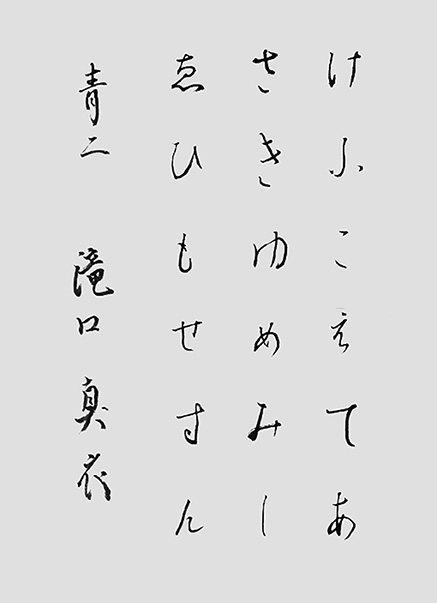 けふこえてあ
さきゆめみし
ゑひもせすん
青二 滝口真衣